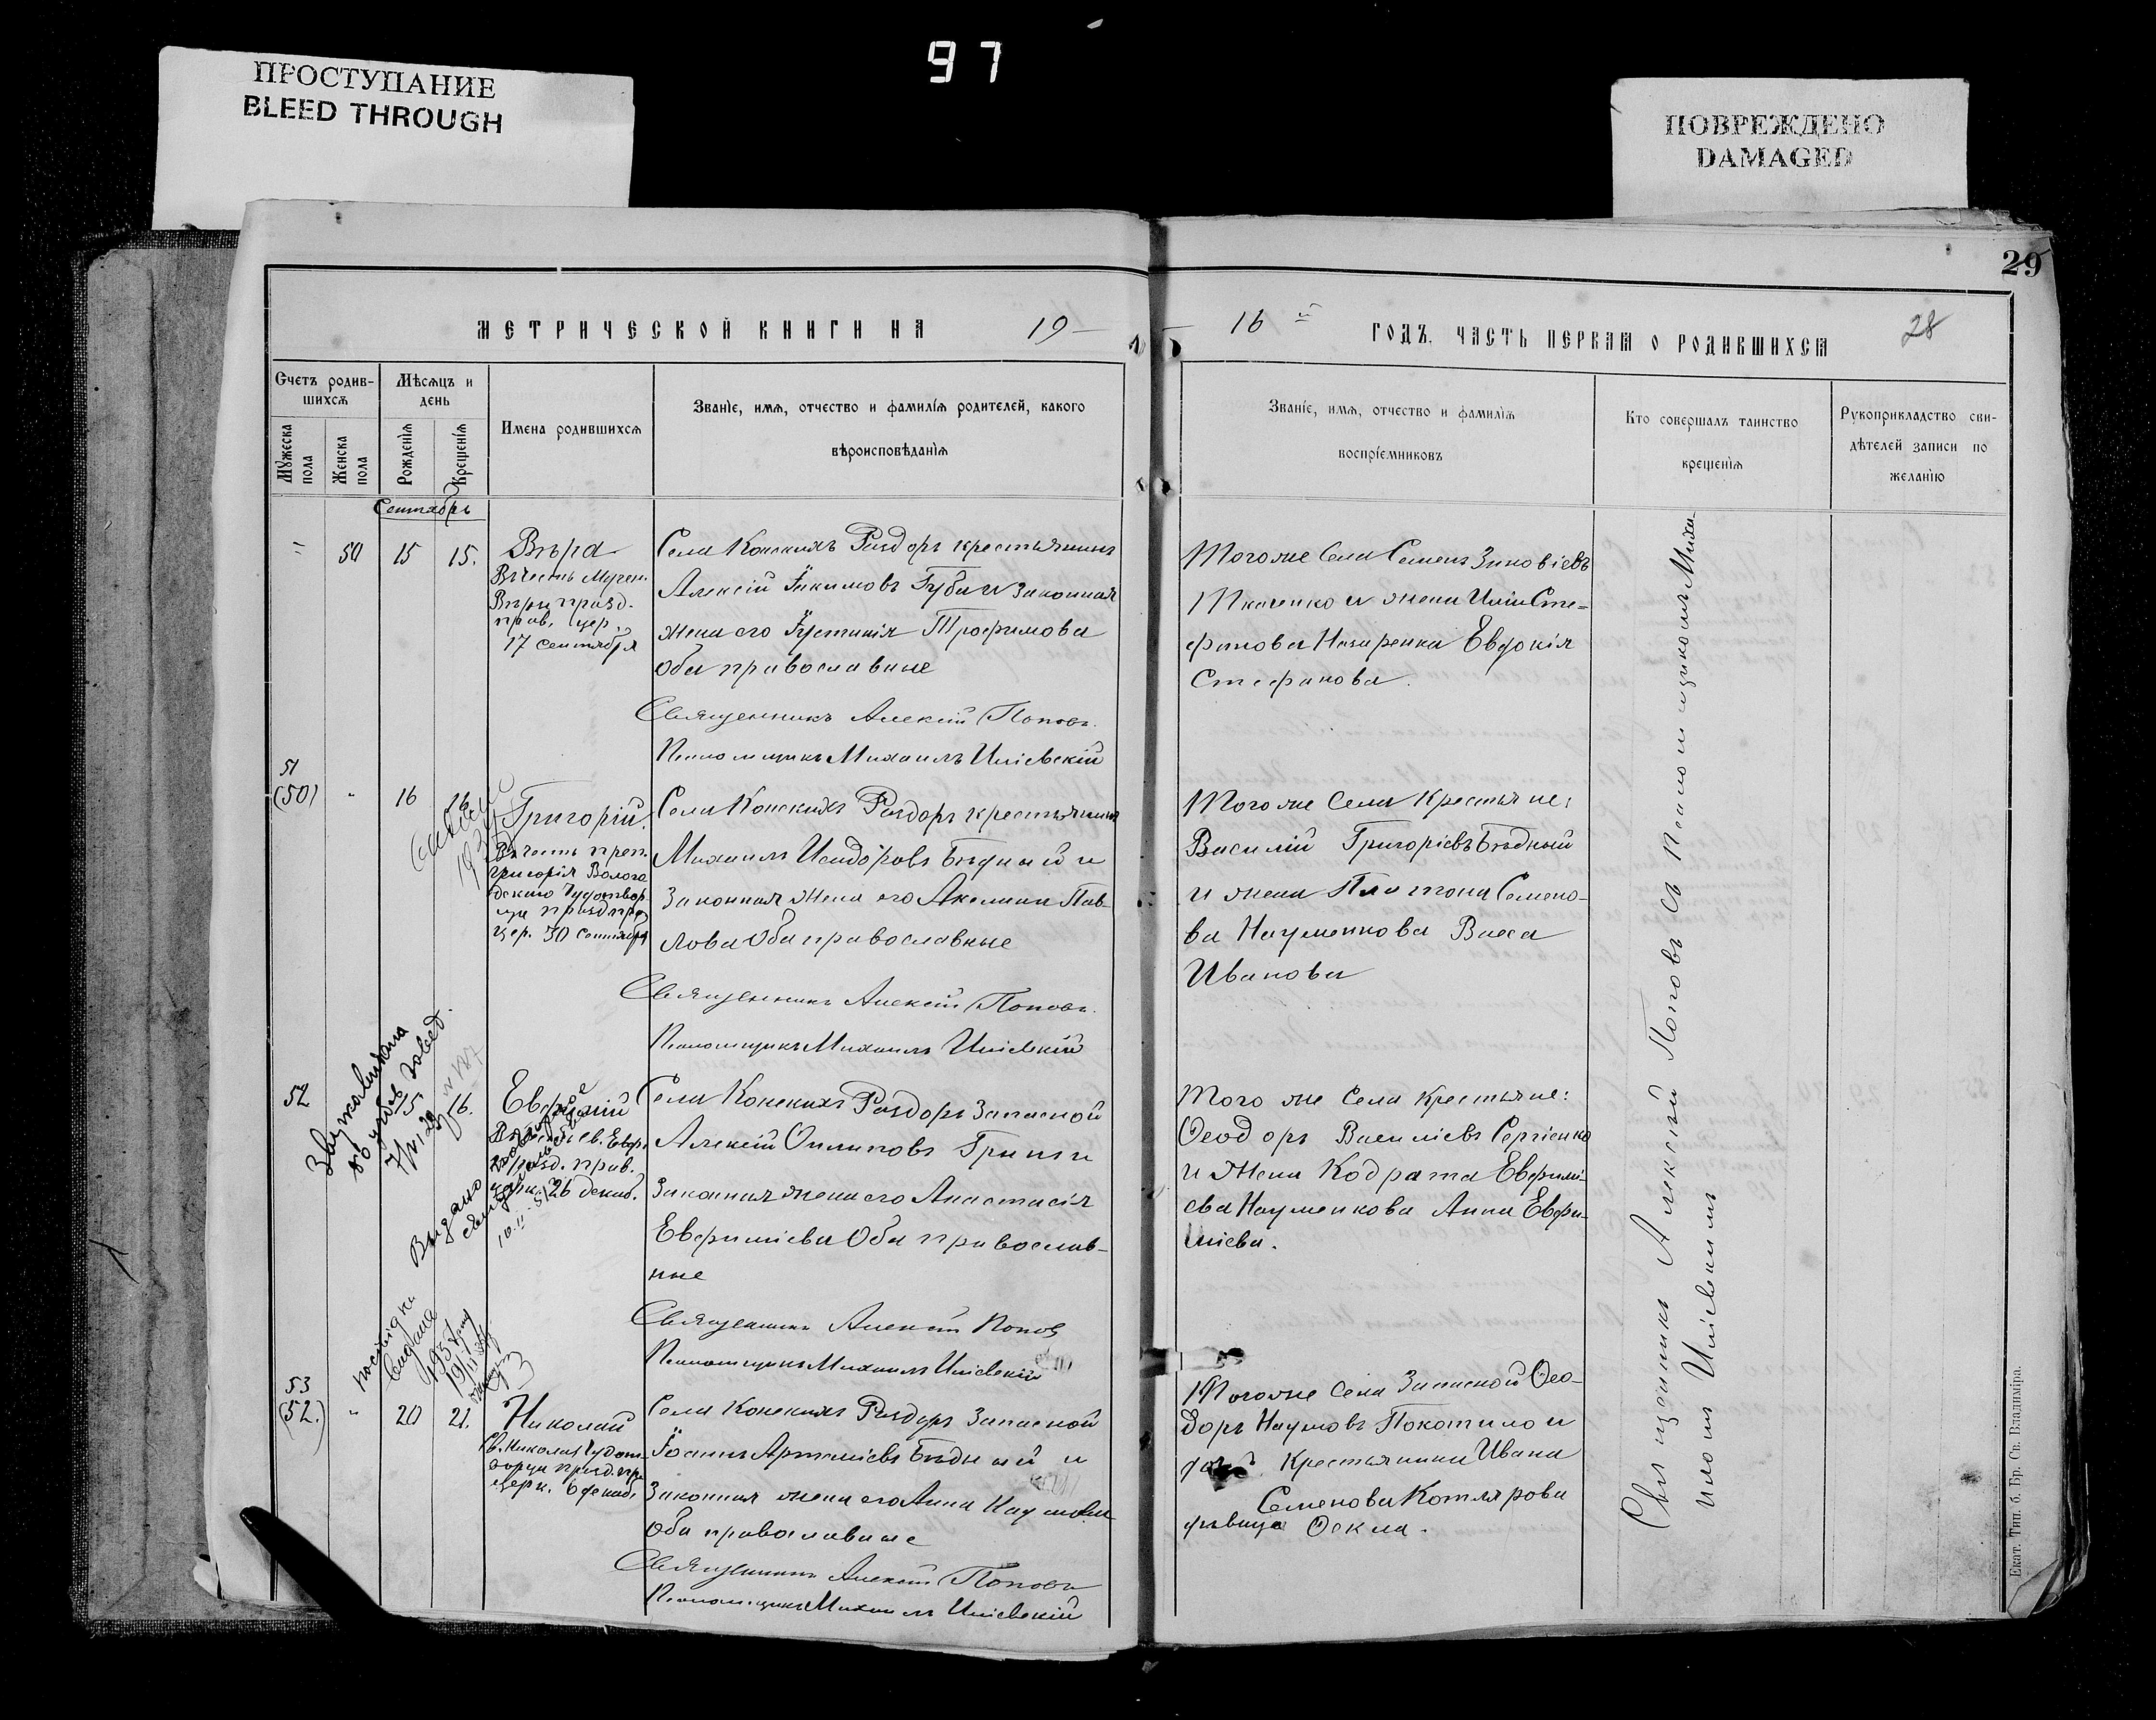 97
ПРОСТУПАНИЕ
BLEED THROUGH
ПОВРЕЖДЕНО
DAMAGED
29
28
МЕТРИЧЕСКОЙ КНИГИ НА 19
16 й ГОДЪ, ЧАСТЬ ПЕРВАЯ О РОДИВШИХСЯ
Счетъ родив-
шихся
Мужеска
пола
Женска
пола
Мѣсяцъ и
день
Рожденія
Крещенія
Имена родившихся
Званіе, имя, отчество и фамилія родителей, какого
вѣроисповѣданія
Званіе, имя, отчество и фамилія
воспріемниковъ
Кто совершалъ таинство
крещенія
Рукоприкладство сви-
дѣтелей записи по
желанію
Сентябрь
50 15 15.
Вѣра
Въ честь Мучен.
Вѣры празд.
прав. цер.
17 сентября
Села Конскихъ Раздоръ крестьянинъ
Алексій Іакимовъ Губа и законная
жена его Іустинія Трофимова
оба православные
Священникъ Алексій Поповъ.
Псаломщикъ Михаилъ Иліевскій
Тогоже Села Семенъ Зиновіевъ
Ткаченко и жена Иліи Сте-
фанова Назаренка Евдокія
Стефанова.
51
(50) " 16 16.
Григорій.
Въ честь преп.
Григорія Волого
дскаго Чудотвор
ца празд. пра
цер. 30 сентября
Села Конскихъ Раздоръ крестьянинъ
Михаилъ Исидоровъ Бѣдный и
законная жена его Акелина Пав-
лова Оба православные
Священникъ Алексій Поповъ.
Псаломщикъ Михаилъ Иліевскій
Тогоже Села Крестьяне:
Василій Григоріевъ Бѣдный
и жена Платона Семено-
ва Науменкова Васса
Иванова
52 15 16.
Евфимій
Въ честь св. Евф.
празд. прав.
26 декаб.
Села Конскихъ Раздоръ Запасной
Алексій Филиповъ Грипа и
Законная жена его Анастасія
Евфиміева Оба православ-
ные
Священникъ Алексій Попов
Псаломщикъ Михаилъ Иліевскій
Того же Села крестьяне:
Ѳеодоръ Василіевъ Сергіенко
и Жена Кодрата Евфимі-
ева Науменкова Анна Евфи-
міева.
Видано
10-II-
посвідка
видана
193
53
(52.) " 20 21.
Николай
Св. Николая Чудот-
ворца празд. пра
церк. 6 декаб.
Села Конскихъ Раздоръ Запасной
Іоаннъ Артеміевъ Бѣдный и
Законная жена его Анна Наумова
Оба православные
Священникъ Алексій Поповъ
Псаломщикъ Михаилъ Иліевскій
Тогоже Села Запасной Ѳео-
доръ Наумовъ Покотило и
Крестьянина Ивана
Семенова Котлярова
дѣвица Ѳекла.
Священникъ Алексій Поповъ съ Псаломщикомъ Михаи-
иломъ Иліевскимъ
Екат. Тип. б. Бр. Св. Владиміра.